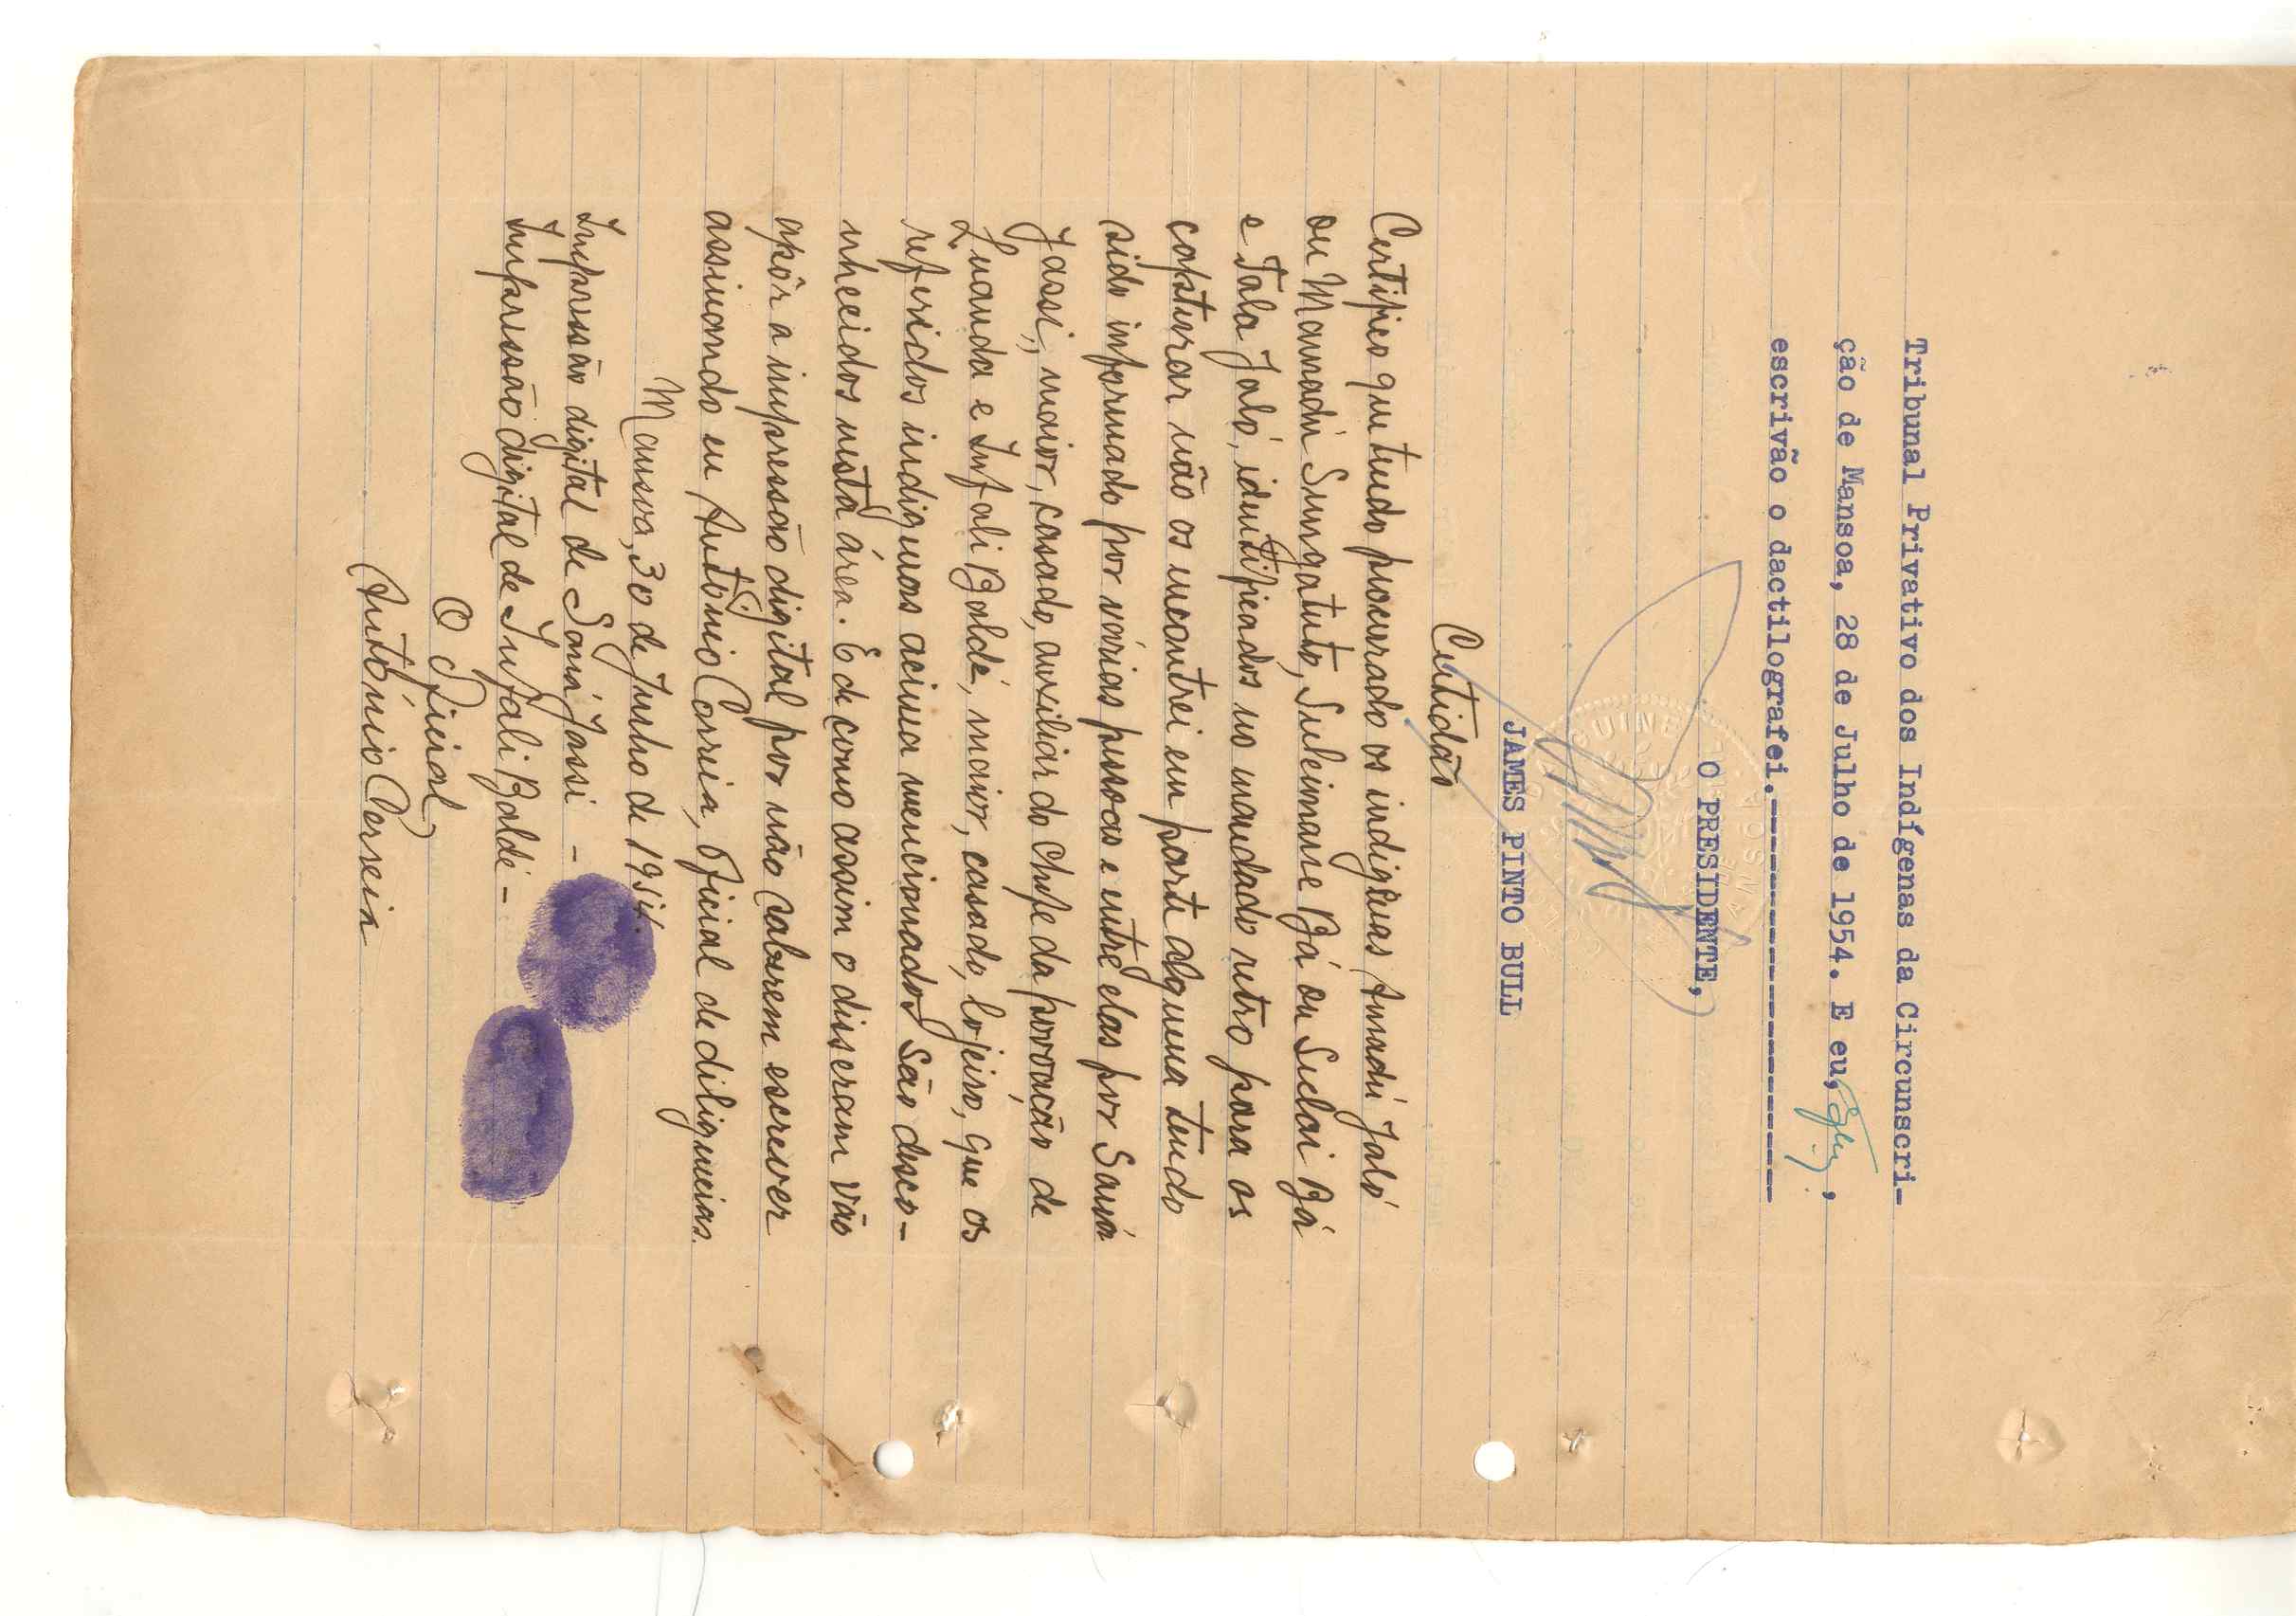 Tribunal Privativo dos Indígenas da Circunscri-
ção de Mansoa, 28 de Julho de 1954. E eu, ,
escrivão o dactilografei.--------------------------
O PRESIDENTE,
GUINE
MANSOA
JAMES PINTO BULL
Certidão
Certifico que tendo procurado os indigenas Amadú Jaló
ou Mamadú Sungatuto, Suleimane Bá ou Sulai Bá
e Tala Jaló, identificados no mandado retro para os
capturar não os encontrei em parte alguma tendo
sido informado por várias pessoas e entre elas por Saná
Jassi, maior, casado, auxiliar do Chefe da povoação de
Luanda e Infali Baldé, maior, casado, lojeiro, que os
referidos indigenas acima mencionados são desco-
nhecidos nesta área. E de como assim o diseram vão
apôr a impressão digital por não saberem escrever
assinando eu António Correia, Oficial de diligencias.
Mansoa, 30 de Junho de 1954.
Impressão digital de Saná Jassi -
Impressão digital de Infali Baldé -
O Oficial
António Correia